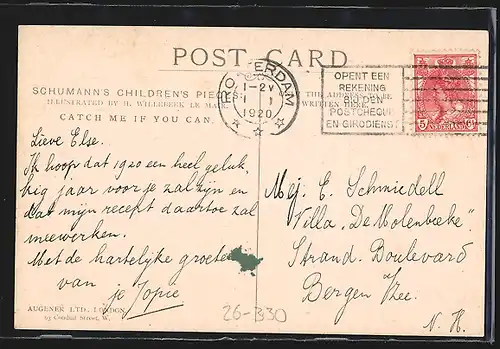 POST CARD
SCHUMANN'S CHILDREN'S PIE
THE ADDRESS
ILLUSTRATED BY H. WILLEBEEK LE MA
WRITTEN HERE.
CATCH ME IF YOU CAN.
ROTTERDAM
1-2V
1 1
1920
OPENT EEN
REKENING
BIJ DEN
POSTCHEQUE
EN GIRODIENST
5 NEDERLAND ct
Lieve Else.
Ik hoop dat 1920 een heel geluk,
kig jaar voor je zal zijn en
dat mijn recept daartoe zal
meewerken.
Met de hartelijke groeten
van
je Jopie
Mej. E. Schmiedell
Villa "De Molenbeeke".
Strand. Boulevard
Bergen a/Zee.
N. H.
AUGENER LTD. LONDON
Conduit Street, W.
26-B30